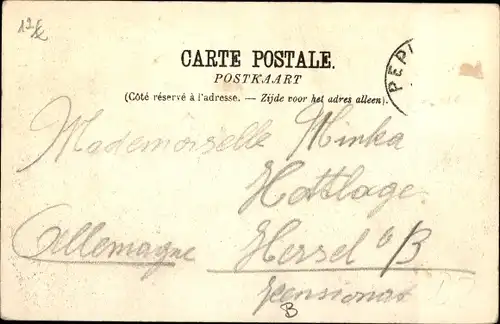 CARTE POSTALE.
POSTKAART
(Côté réservé à l'adresse. — Zijde voor het adres alleen).
PEPI
Mademoiselle Minka
Hottlage
Allemagne Hersel b/B
Pensionat
B